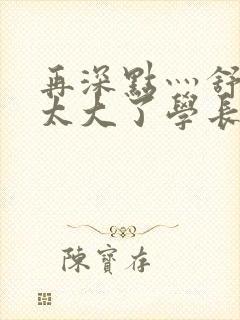 再深點灬舒
太大了學長
陳寶存